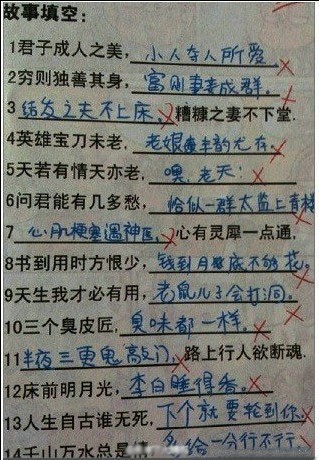 故事填空:
1君子成人之美, 小人夺人所爱 ×
2穷则独善其身, 富则妻妾成群. ×
3 结发之夫不上床, × 糟糠之妻不下堂.
4英雄宝刀未老, 老娘风韵尤存. ×
5天若有情天亦老, 噢,老天! ×
6问君能有几多愁, 恰似一群太监上青楼
7 心肌梗塞遇神医, × 心有灵犀一点通,
8书到用时方恨少, 钱到月底不够花. ×
9天生我才必有用, 老鼠儿子会打洞. ×
10三个臭皮匠, 臭味都一样. ×
11半夜三更鬼敲门, × 路上行人欲断魂.
12床前明月光, 李白睡得香. ×
13人生自古谁无死, 下个就要轮到你. ×
14千山万水总是情 多给一分行不行. ×